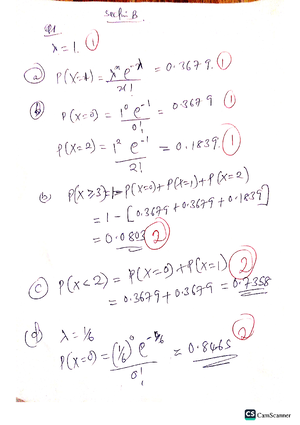 Section B.
Q1.
λ = 1. 1
(a) P(X=1) = λˣ e^-λ / x! = 0.3679. 1
(b) P(X=0) = 1⁰ e⁻¹ / 0! = 0.3679 1
P(X=2) = 1² e⁻¹ / 2! = 0.1839. 1
(b) P(X≥3) = 1- P(X=0)+P(X=1)+P(X=2)
= 1 - [0.3679 + 0.3679 + 0.1839]
= 0.0803 2
(c) P(X<2) = P(X=0)+P(X=1) 2
= 0.3679 + 0.3679 = 0.7358
(d) λ = 1/6
P(X=0) = (1/6)⁰ e^-1/6 / 0! = 0.8465 2
CS CamScanner